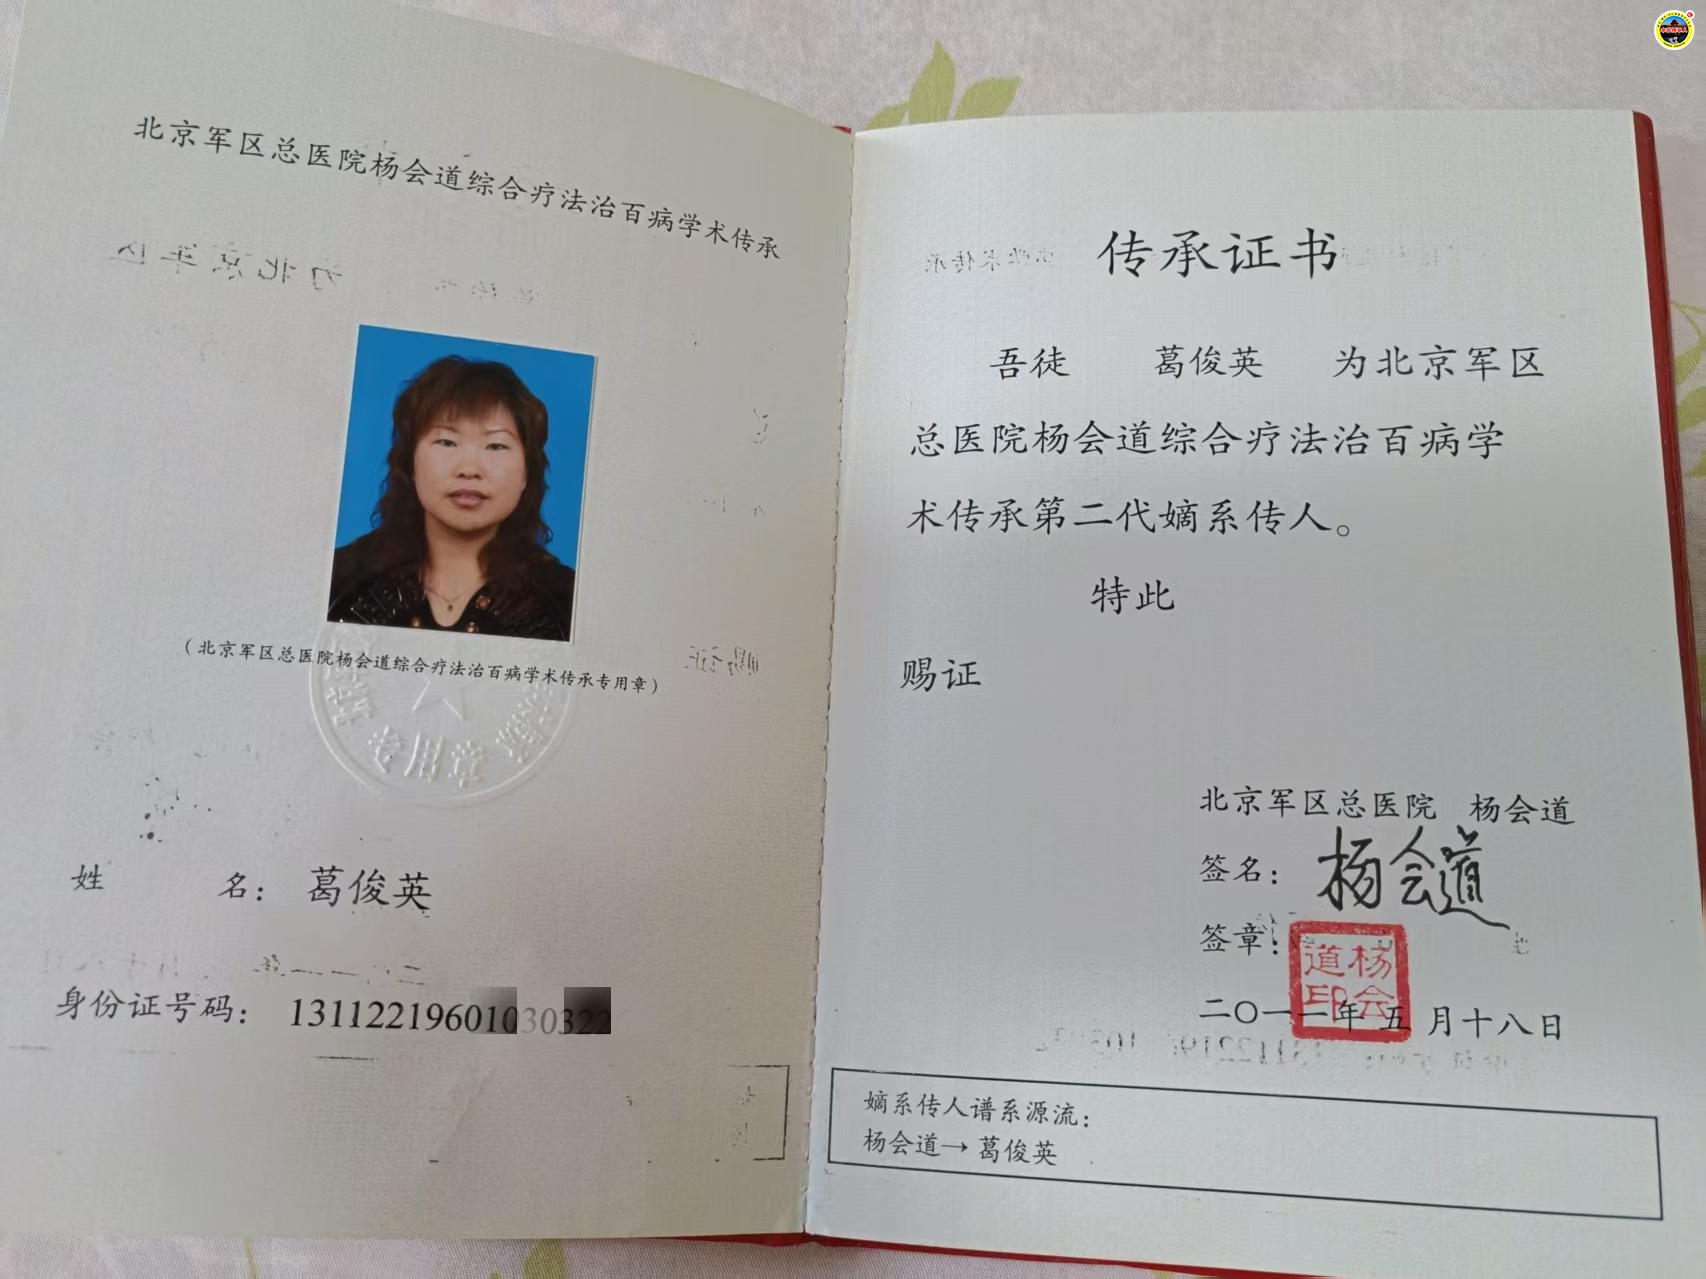 北京军区总医院杨会道综合疗法治百病学术传承
（北京军区总医院杨会道综合疗法治百病学术传承专用章）
专用章
姓 名：葛俊英
身份证号码：1311221960
传承证书
吾徒 葛俊英 为北京军区
总医院杨会道综合疗法治百病学
术传承第二代嫡系传人。
特此
赐证
北京军区总医院 杨会道
签名：杨会道
签章：
杨会道印
二〇一一年 五 月十八日
嫡系传人谱系源流：
杨会道→葛俊英